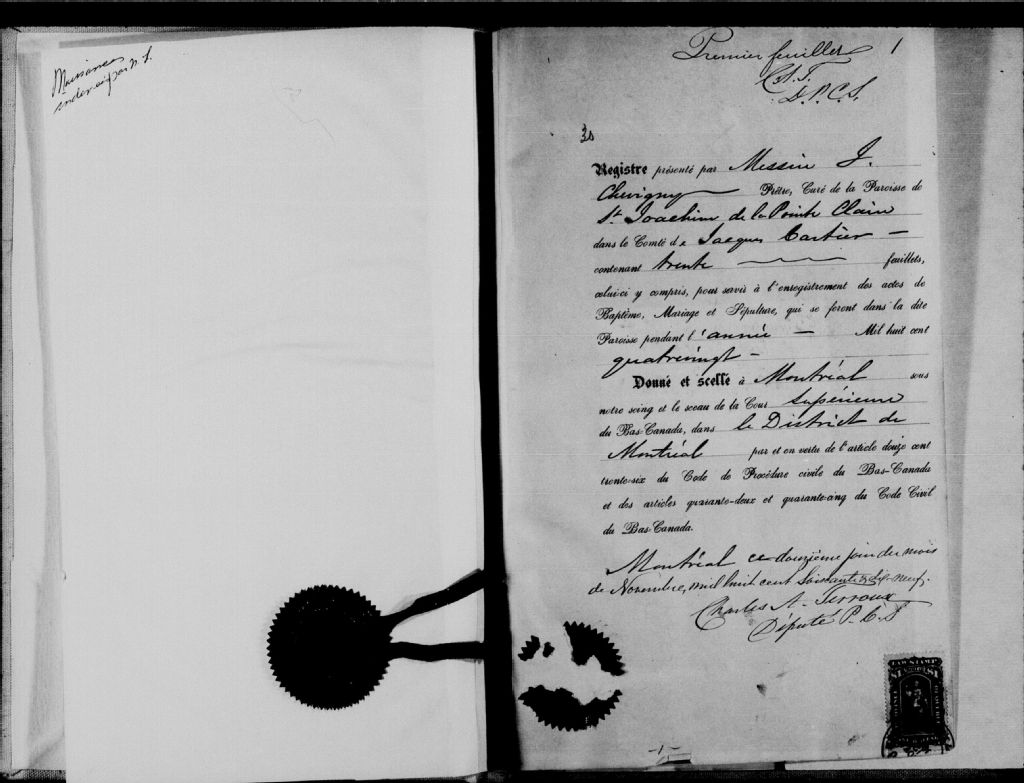 Premier feuillet 1
C. A. T.
D. P. C. S.
30
Registre présenté par Messire J.
Chevigny Prêtre, Curé de la Paroisse de
St. Joachim de la Pointe Claire
dans le Comté de Jacques Cartier
contenant trente feuillets,
celui-ci y compris, pour servir à l'enregistrement des actes de
Baptême, Mariage et Sépulture, qui se feront dans la dite
Paroisse pendant l'année Mil huit cent
quatrevingt
Donné et scellé à Montréal sous
notre seing et le sceau de la Cour Supérieure
du Bas-Canada, dans le District de
Montréal par et en vertu de l'article douze cent
trente-six du Code de Procédure civile du Bas-Canada
et des articles quarante-deux et quarante-cinq du Code Civil
du Bas-Canada.
Montréal ce douzième jour du mois
de Novembre, mil huit cent Soixante & dix-neuf.
Charles A. Terroux
Député P. C. S
LAW STAMP